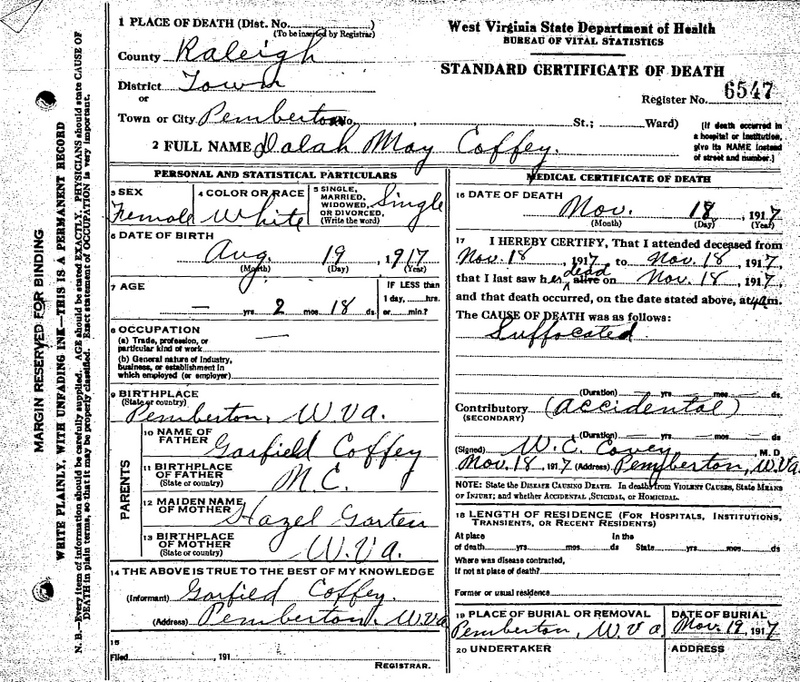 MARGIN RESERVED FOR BINDING
WRITE PLAINLY, WITH UNFADING INK—THIS IS A PERMANENT RECORD
N. B.—Every item of information should be carefully supplied. AGE should be stated EXACTLY. PHYSICIANS should state CAUSE OF
DEATH in plain terms, so that it may be properly classified. Exact statement of OCCUPATION is very important.
1 PLACE OF DEATH (Dist. No.
(To be inserted by Registrar)
County Raleigh
District Town
or
Town or City Pemberton No. St.; Ward)
2 FULL NAME Dalah May Coffey.
West Virginia State Department of Health
BUREAU OF VITAL STATISTICS
STANDARD CERTIFICATE OF DEATH
Register No. 6547
(If death occurred in
a hospital or institution,
give its NAME instead
of street and number.)
PERSONAL AND STATISTICAL PARTICULARS
3 SEX
Female
4 COLOR OR RACE
White
5 SINGLE,
MARRIED,
WIDOWED,
OR DIVORCED,
(Write the word)
Single
6 DATE OF BIRTH
Aug. 19, 1917
(Month) (Day) (Year)
7 AGE
— yrs. 2 mos. 18 ds.
IF LESS than
1 day, hrs.
or min.?
8 OCCUPATION
(a) Trade, profession, or
particular kind of work —
(b) General nature of industry,
business, or establishment in
which employed (or employer)
9 BIRTHPLACE
(State or country)
Pemberton, W. Va.
PARENTS
10 NAME OF
FATHER
Garfield Coffey
11 BIRTHPLACE
OF FATHER
(State or country)
N.C.
12 MAIDEN NAME
OF MOTHER
Hazel Garten
13 BIRTHPLACE
OF MOTHER
(State or country)
W. Va.
14 THE ABOVE IS TRUE TO THE BEST OF MY KNOWLEDGE
(Informant) Garfied Coffey.
(Address) Pemberton, W. Va
15
Filed , 191
REGISTRAR.
MEDICAL CERTIFICATE OF DEATH
16 DATE OF DEATH
Nov. 18, 1917
(Month) (Day) (Year)
17 I HEREBY CERTIFY, That I attended deceased from
Nov. 18, 1917 to Nov. 18, 1917,
that I last saw her dead alive on Nov. 18, 1917,
and that death occurred, on the date stated above, at 4 a m.
The CAUSE OF DEATH was as follows:
Suffocated
(Duration) yrs mos ds.
Contributory (accidental)
(SECONDARY)
(Duration) — yrs — mos — ds
(Signed) W. C. Covey M. D.
Nov. 18, 1917 (Address) Pemberton, W. Va
NOTE: State the DISEASE CAUSING DEATH. In deaths from VIOLENT CAUSES, State MEANS
OF INJURY; and whether ACCIDENTAL, SUICIDAL, or HOMICIDAL.
18 LENGTH OF RESIDENCE (FOR HOSPITALS, INSTITUTIONS,
TRANSIENTS, OR RECENT RESIDENTS)
At place In the
of death yrs mos ds. State yrs mos ds
Where was disease contracted,
If not at place of death?
Former or usual residence
19 PLACE OF BURIAL OR REMOVAL
Pemberton, W. Va
DATE OF BURIAL
Nov. 19, 1917
20 UNDERTAKER
ADDRESS